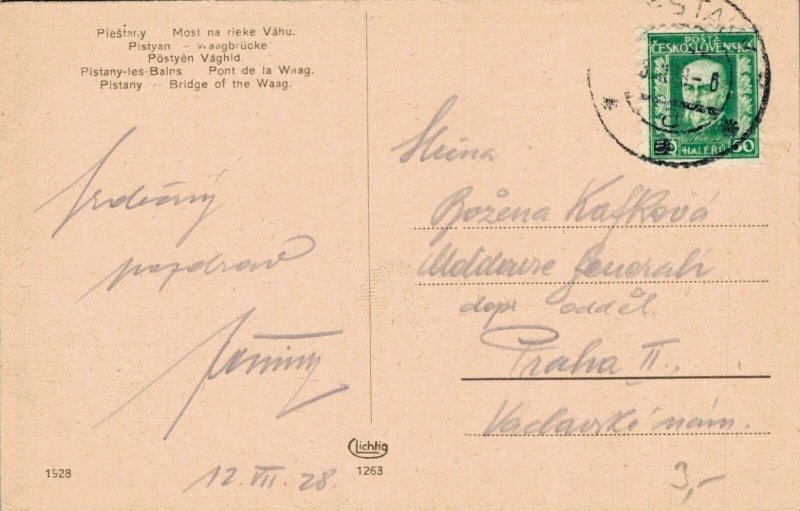 Piešťany Most na rieke Váhu.
Pistyan - Waagbrücke
Pöstyén Vághid.
Pistany-les-Bains Pont de la Waag.
Pistany -- Bridge of the Waag.
POŠTA
ČESKOSLOVENSKÁ
HALÉŘŮ 50
Srdečný
pozdrav
Slečna
Božena Kafková
Generali
dopr odděl
Praha II.,
Václavské nám.
Lichtig
1928
1263
12. VII. 28.
3,-